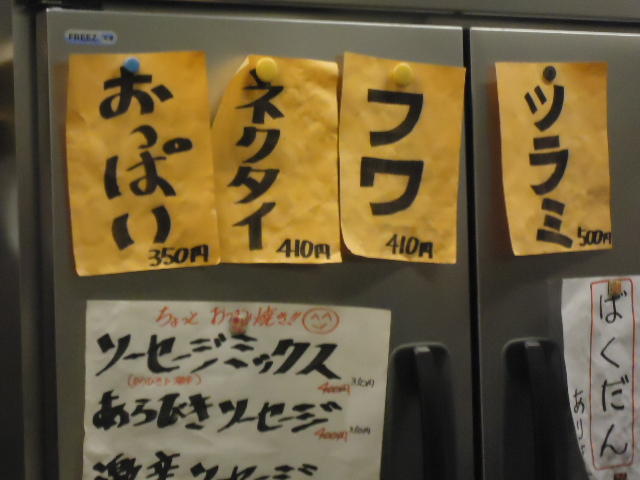 FREEZ
おっぱい
350円
ネクタイ
410円
フワ
410円
ツラミ
500円
ちょっと おつまみ焼き!!
ソーセージミックス
400円
350円
あらびきソーセージ
400円
350円
激辛ソーセージ
ばくだん